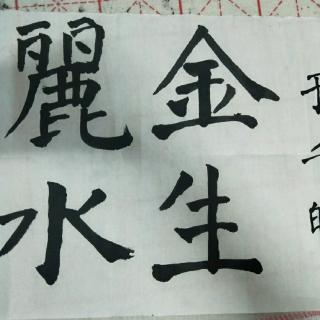 金生
麗水